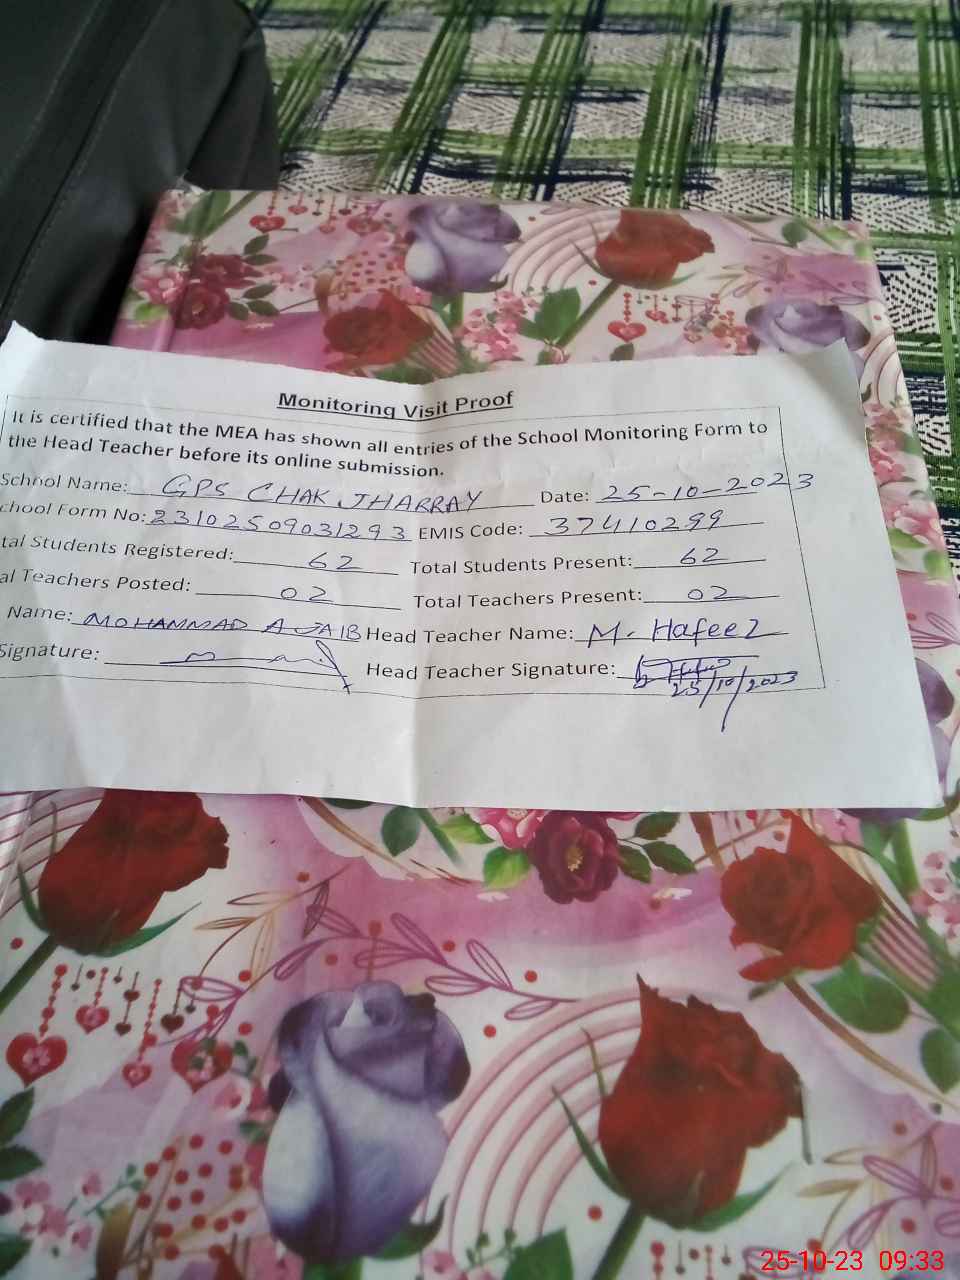 Monitoring Visit Proof
It is certified that the MEA has shown all entries of the School Monitoring Form to
the Head Teacher before its online submission.
School Name: GPS CHAK JHARRAY Date: 25-10-2023
chool Form No: 23102509031293 EMIS Code: 37410299
tal Students Registered: 62 Total Students Present: 62
al Teachers Posted: 02 Total Teachers Present: 02
Name: MOHAMMAD AJAIB Head Teacher Name: M. Hafeez
Signature: Head Teacher Signature:
25/10/2023
25-10-23 09:33